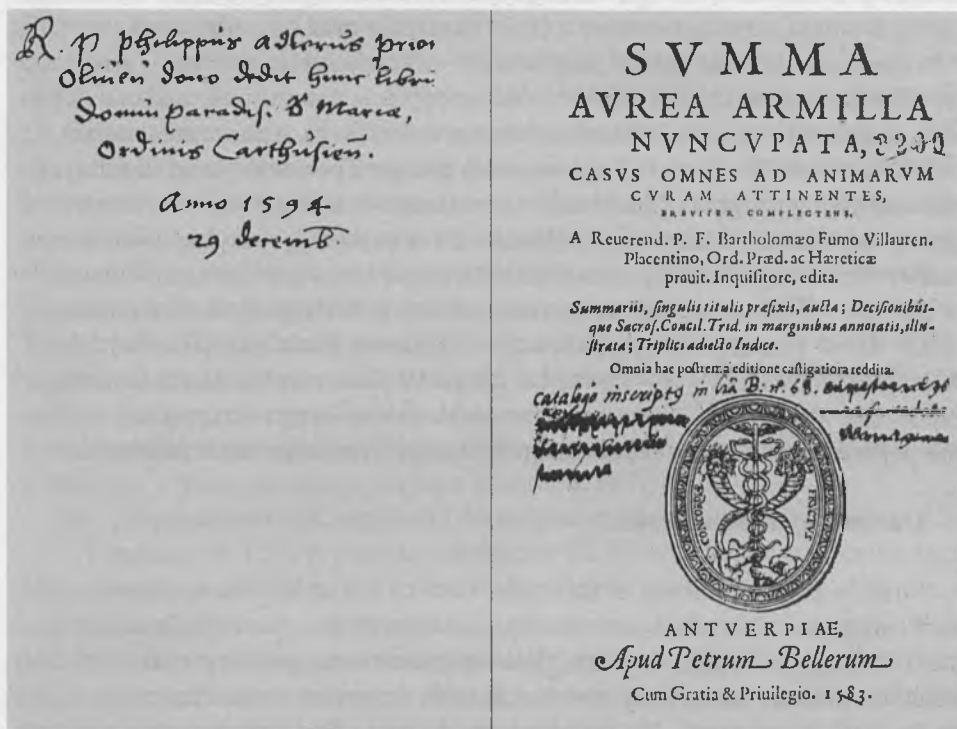 R. P Philippus Adlerus prior
Olivieñ dono dedit hunc librū
Domui paradis. B Mariæ,
Ordinis Carthusieñ.
Anno 1594.
29 decemb.
SVMMA
AVREA ARMILLA
NVNCVPATA,
CASVS OMNES AD ANIMARVM
CVRAM ATTINENTES,
BREVITER COMPLECTENS,
A Reuerend. P. F. Bartholomæo Fumo Villauren.
Placentino, Ord. Præd. ac Hæreticæ
prauit. Inquisitore, edita.
Summariis, singulis titulis præfixis, aucta; Decisionibus-
que Sacros. Concil. Trid. in marginibus annotatis, illu-
strata; Triplici adiecto Indice.
Omnia hac postrema editione castigatiora reddita.
Catalogo inscriptus in lrā B: nº. 68.
CONCORDIÆ FRVCTVS
ANTVERPIAE,
Apud Petrum Bellerum
Cum Gratia & Priuilegio. 1583.